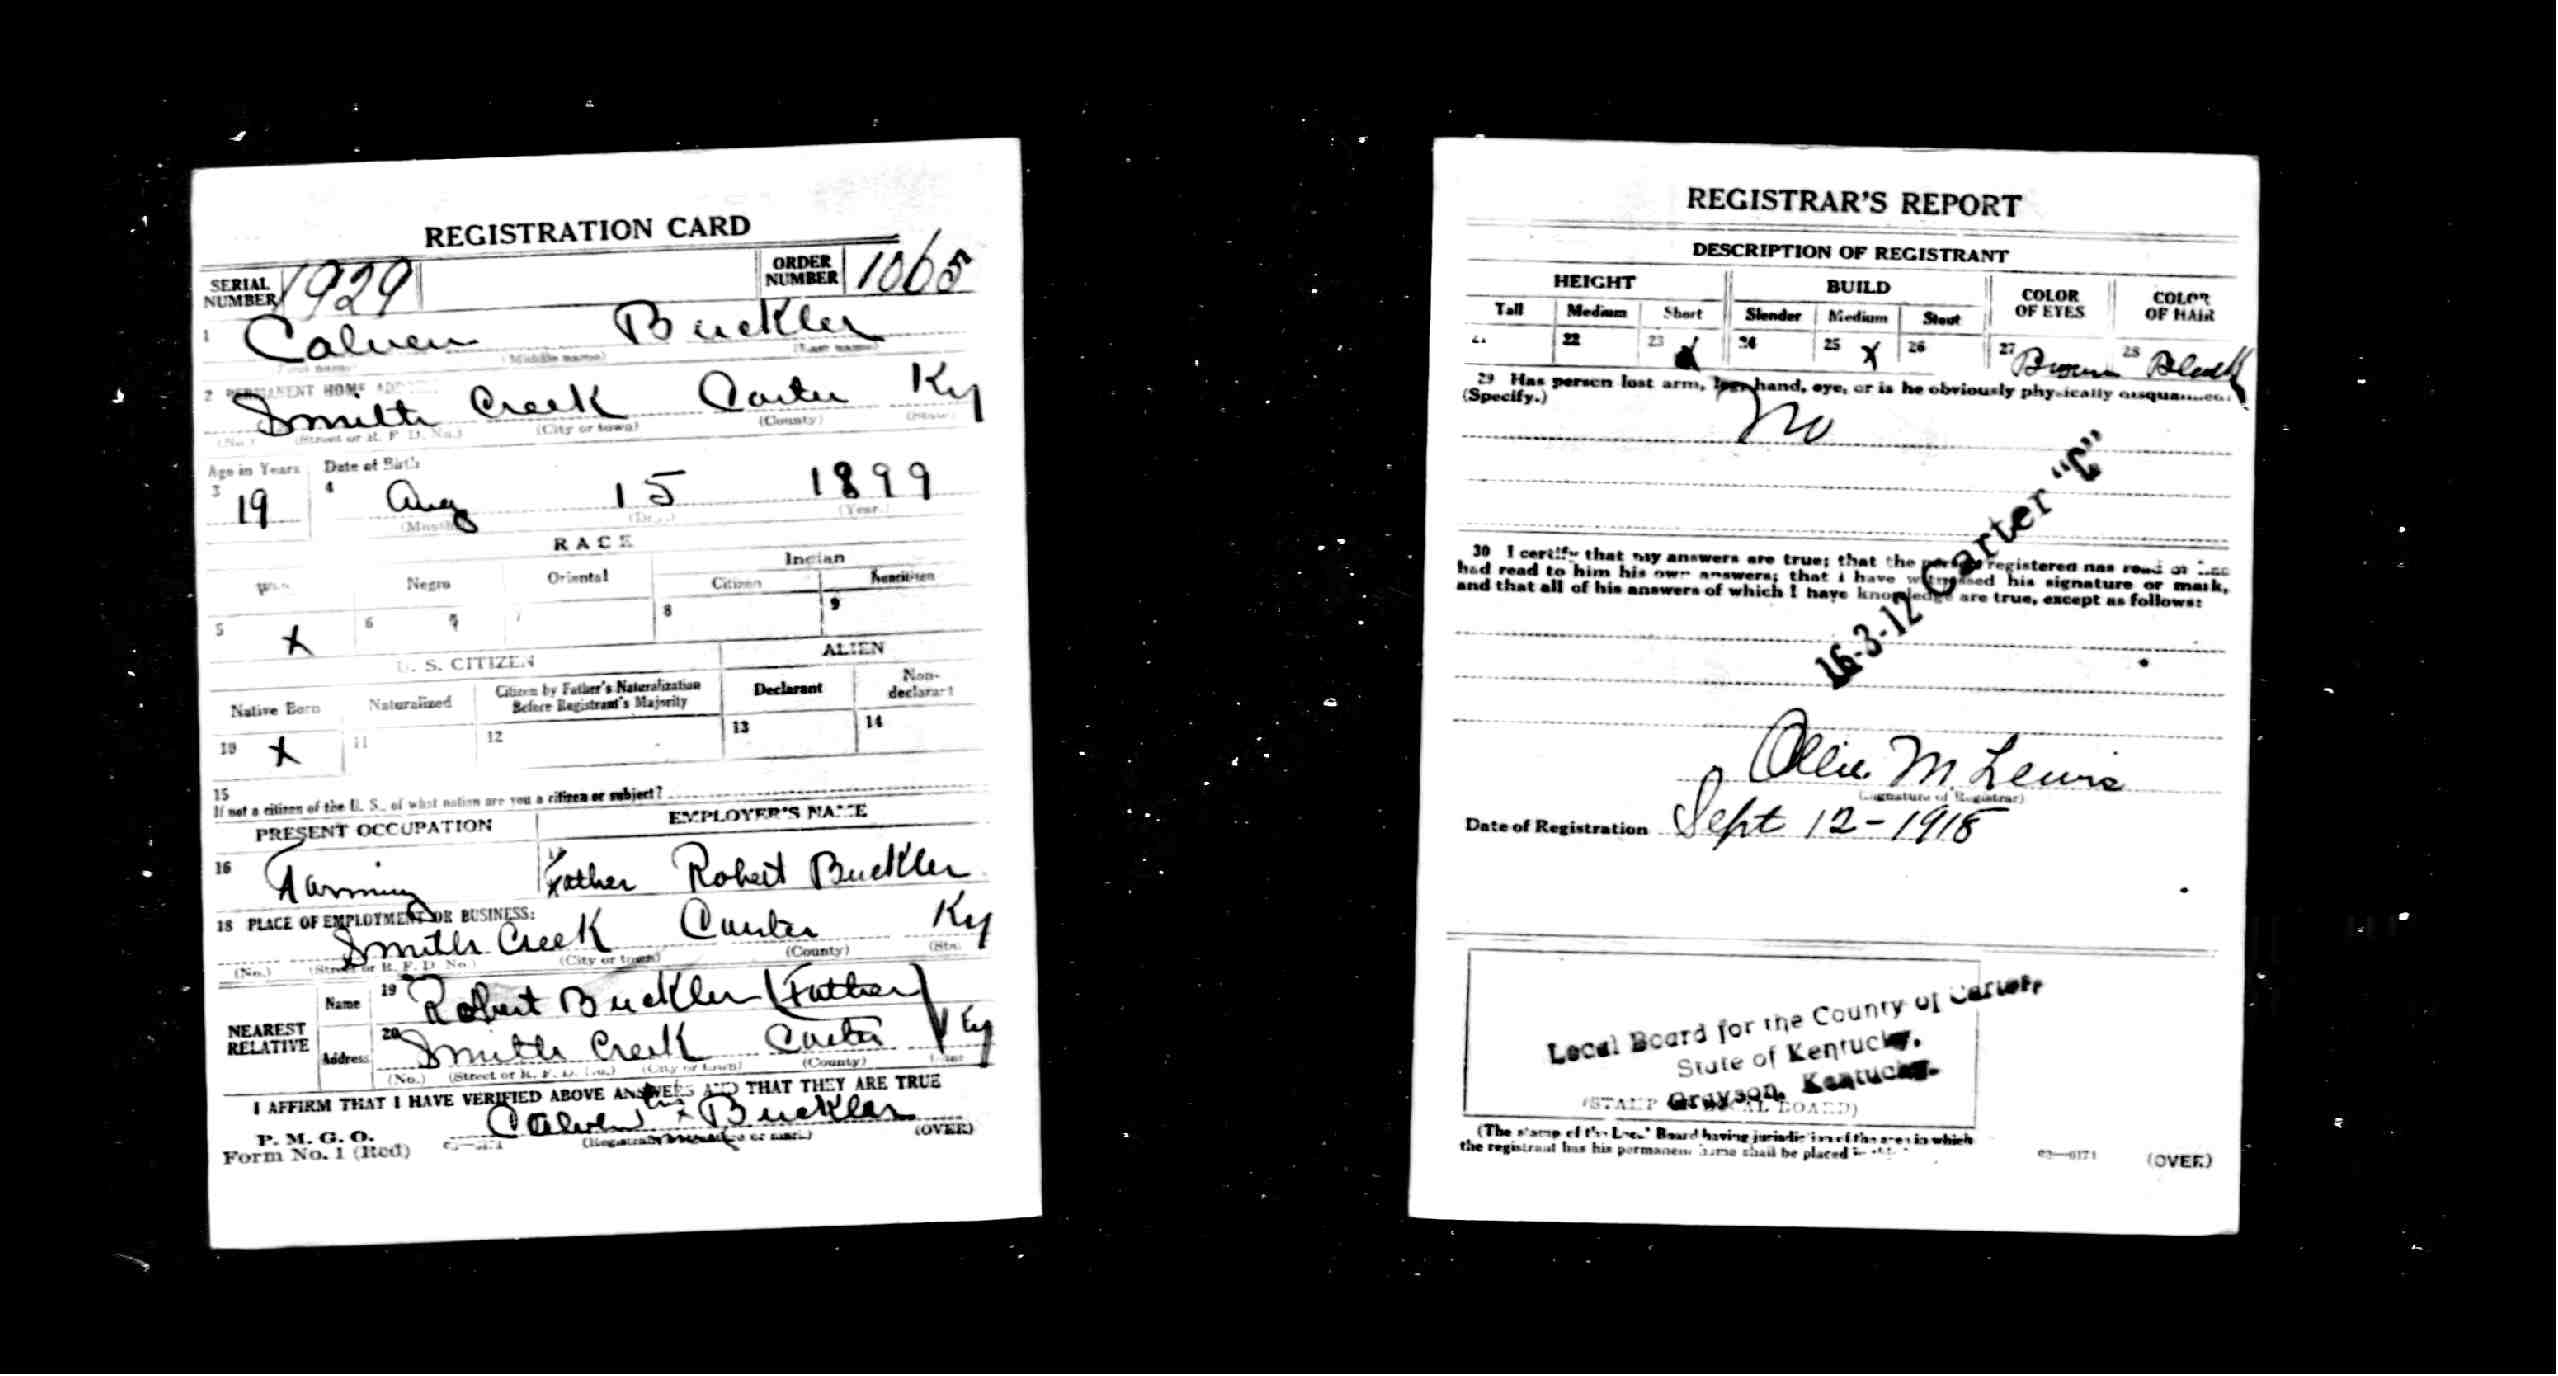 REGISTRATION CARD
SERIAL NUMBER 1929 ORDER NUMBER 1065
1 Calven Buckler
(First name) (Middle name) (Last name)
2 PERMANENT HOME ADDRESS
Smith Creek Carter Ky
(No.) (Street or R. F. D. No.) (City or town) (County) (State)
Age in Years Date of Birth
3 19 4 Aug 15 1899
(Month) (Day) (Year)
RACE
White Negro Oriental Indian
Citizen Noncitizen
5 X 6 7 8 9
U. S. CITIZEN ALIEN
Native Born Naturalized Citizen by Father's Naturalization Before Registrant's Majority Declarant Non-declarant
10 X 11 12 13 14
15
If not a citizen of the U. S., of what nation are you a citizen or subject?
PRESENT OCCUPATION EMPLOYER'S NAME
16 Farming 17 Father Robert Buckler
18 PLACE OF EMPLOYMENT OR BUSINESS:
Smith Creek Carter Ky
(No.) (Street or R. F. D. No.) (City or town) (County) (State)
NEAREST RELATIVE Name 19 Robert Buckler (Father)
Address 20 Smith Creek Carter Ky
(No.) (Street or R. F. D. No.) (City or town) (County) (State)
I AFFIRM THAT I HAVE VERIFIED ABOVE ANSWERS AND THAT THEY ARE TRUE
his
Calven X Buckler
mark
P. M. G. O.
Form No. 1 (Red) (Registrant's signature or mark.) (OVER)
REGISTRAR'S REPORT
DESCRIPTION OF REGISTRANT
HEIGHT BUILD COLOR OF EYES COLOR OF HAIR
Tall Medium Short Slender Medium Stout
21 22 23 X 24 25 X 26 27 Brown 28 Black
29 Has person lost arm, leg, hand, eye, or is he obviously physically disqualified?
(Specify.)
No
30 I certify that my answers are true; that the person registered has read or has
had read to him his own answers; that I have witnessed his signature or mark,
and that all of his answers of which I have knowledge are true, except as follows:
16-3-12 Carter "C"
Ollie M. Lewis
(Signature of Registrar)
Date of Registration Sept 12-1918
Local Board for the County of Carter,
State of Kentucky,
Grayson, Kentucky.
(STAMP OF LOCAL BOARD)
(The stamp of the Local Board having jurisdiction of the area in which
the registrant has his permanent home shall be placed in this
03—6171 (OVER)